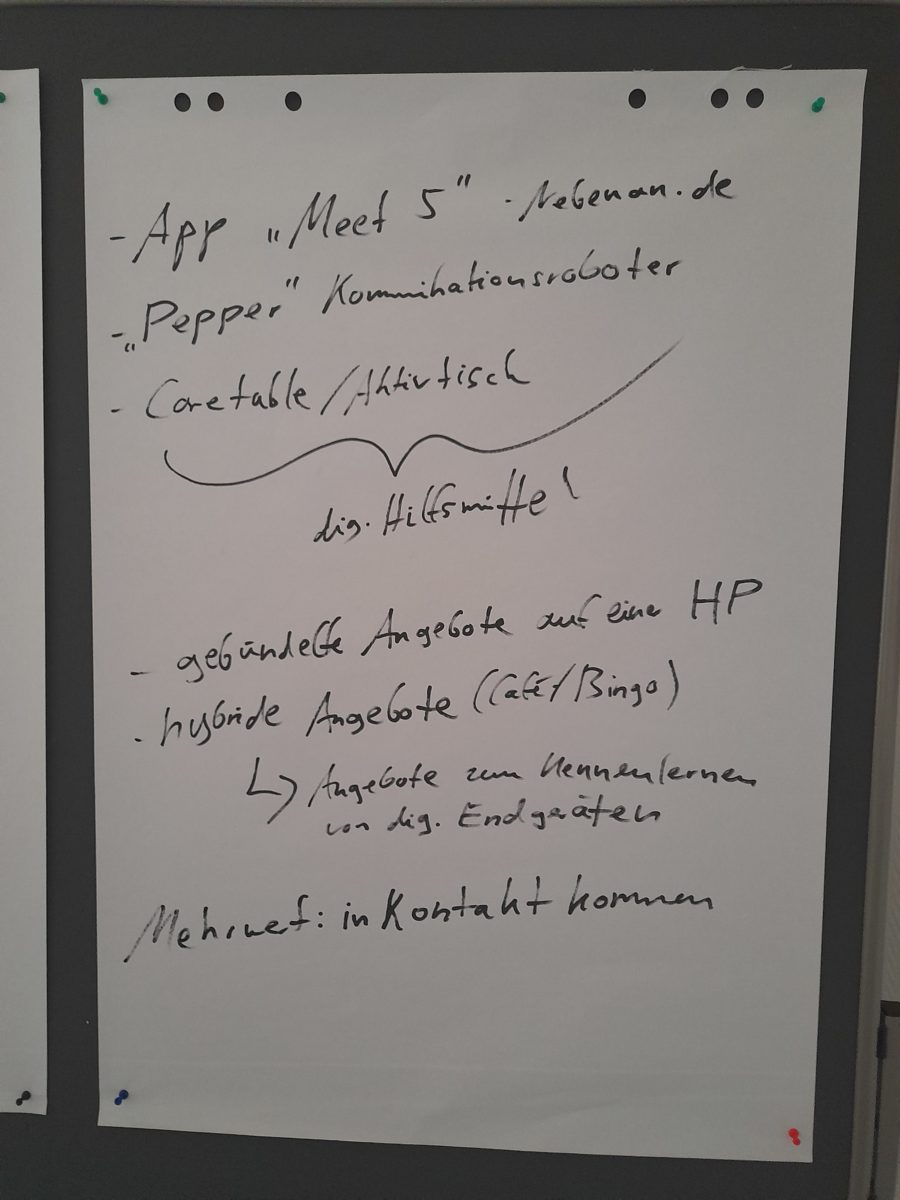 - App „Meet 5" - Nebenan.de
- „Pepper" Kommunikationsroboter
- Caretable/Aktivtisch
dig. Hilfsmittel
- gebündelte Angebote auf eine HP
- hybride Angebote (Café/Bingo)
↳ Angebote zum Kennenlernen
von dig. Endgeräten
Mehrwert: in Kontakt kommen